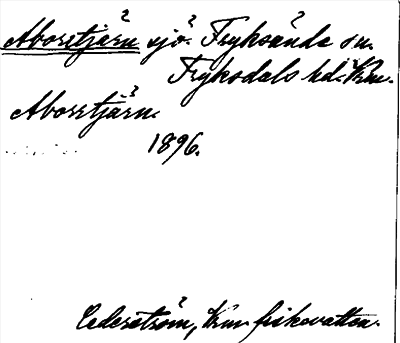 Aborrtjärn sjö. Fryksände sn.
Fryksdals hd. Krm.
Aborrtjärn.
1896.
Cederström, Krm fiskevatten.